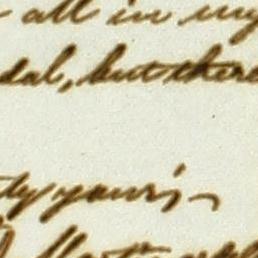 all in my
sal, but there
ty yours